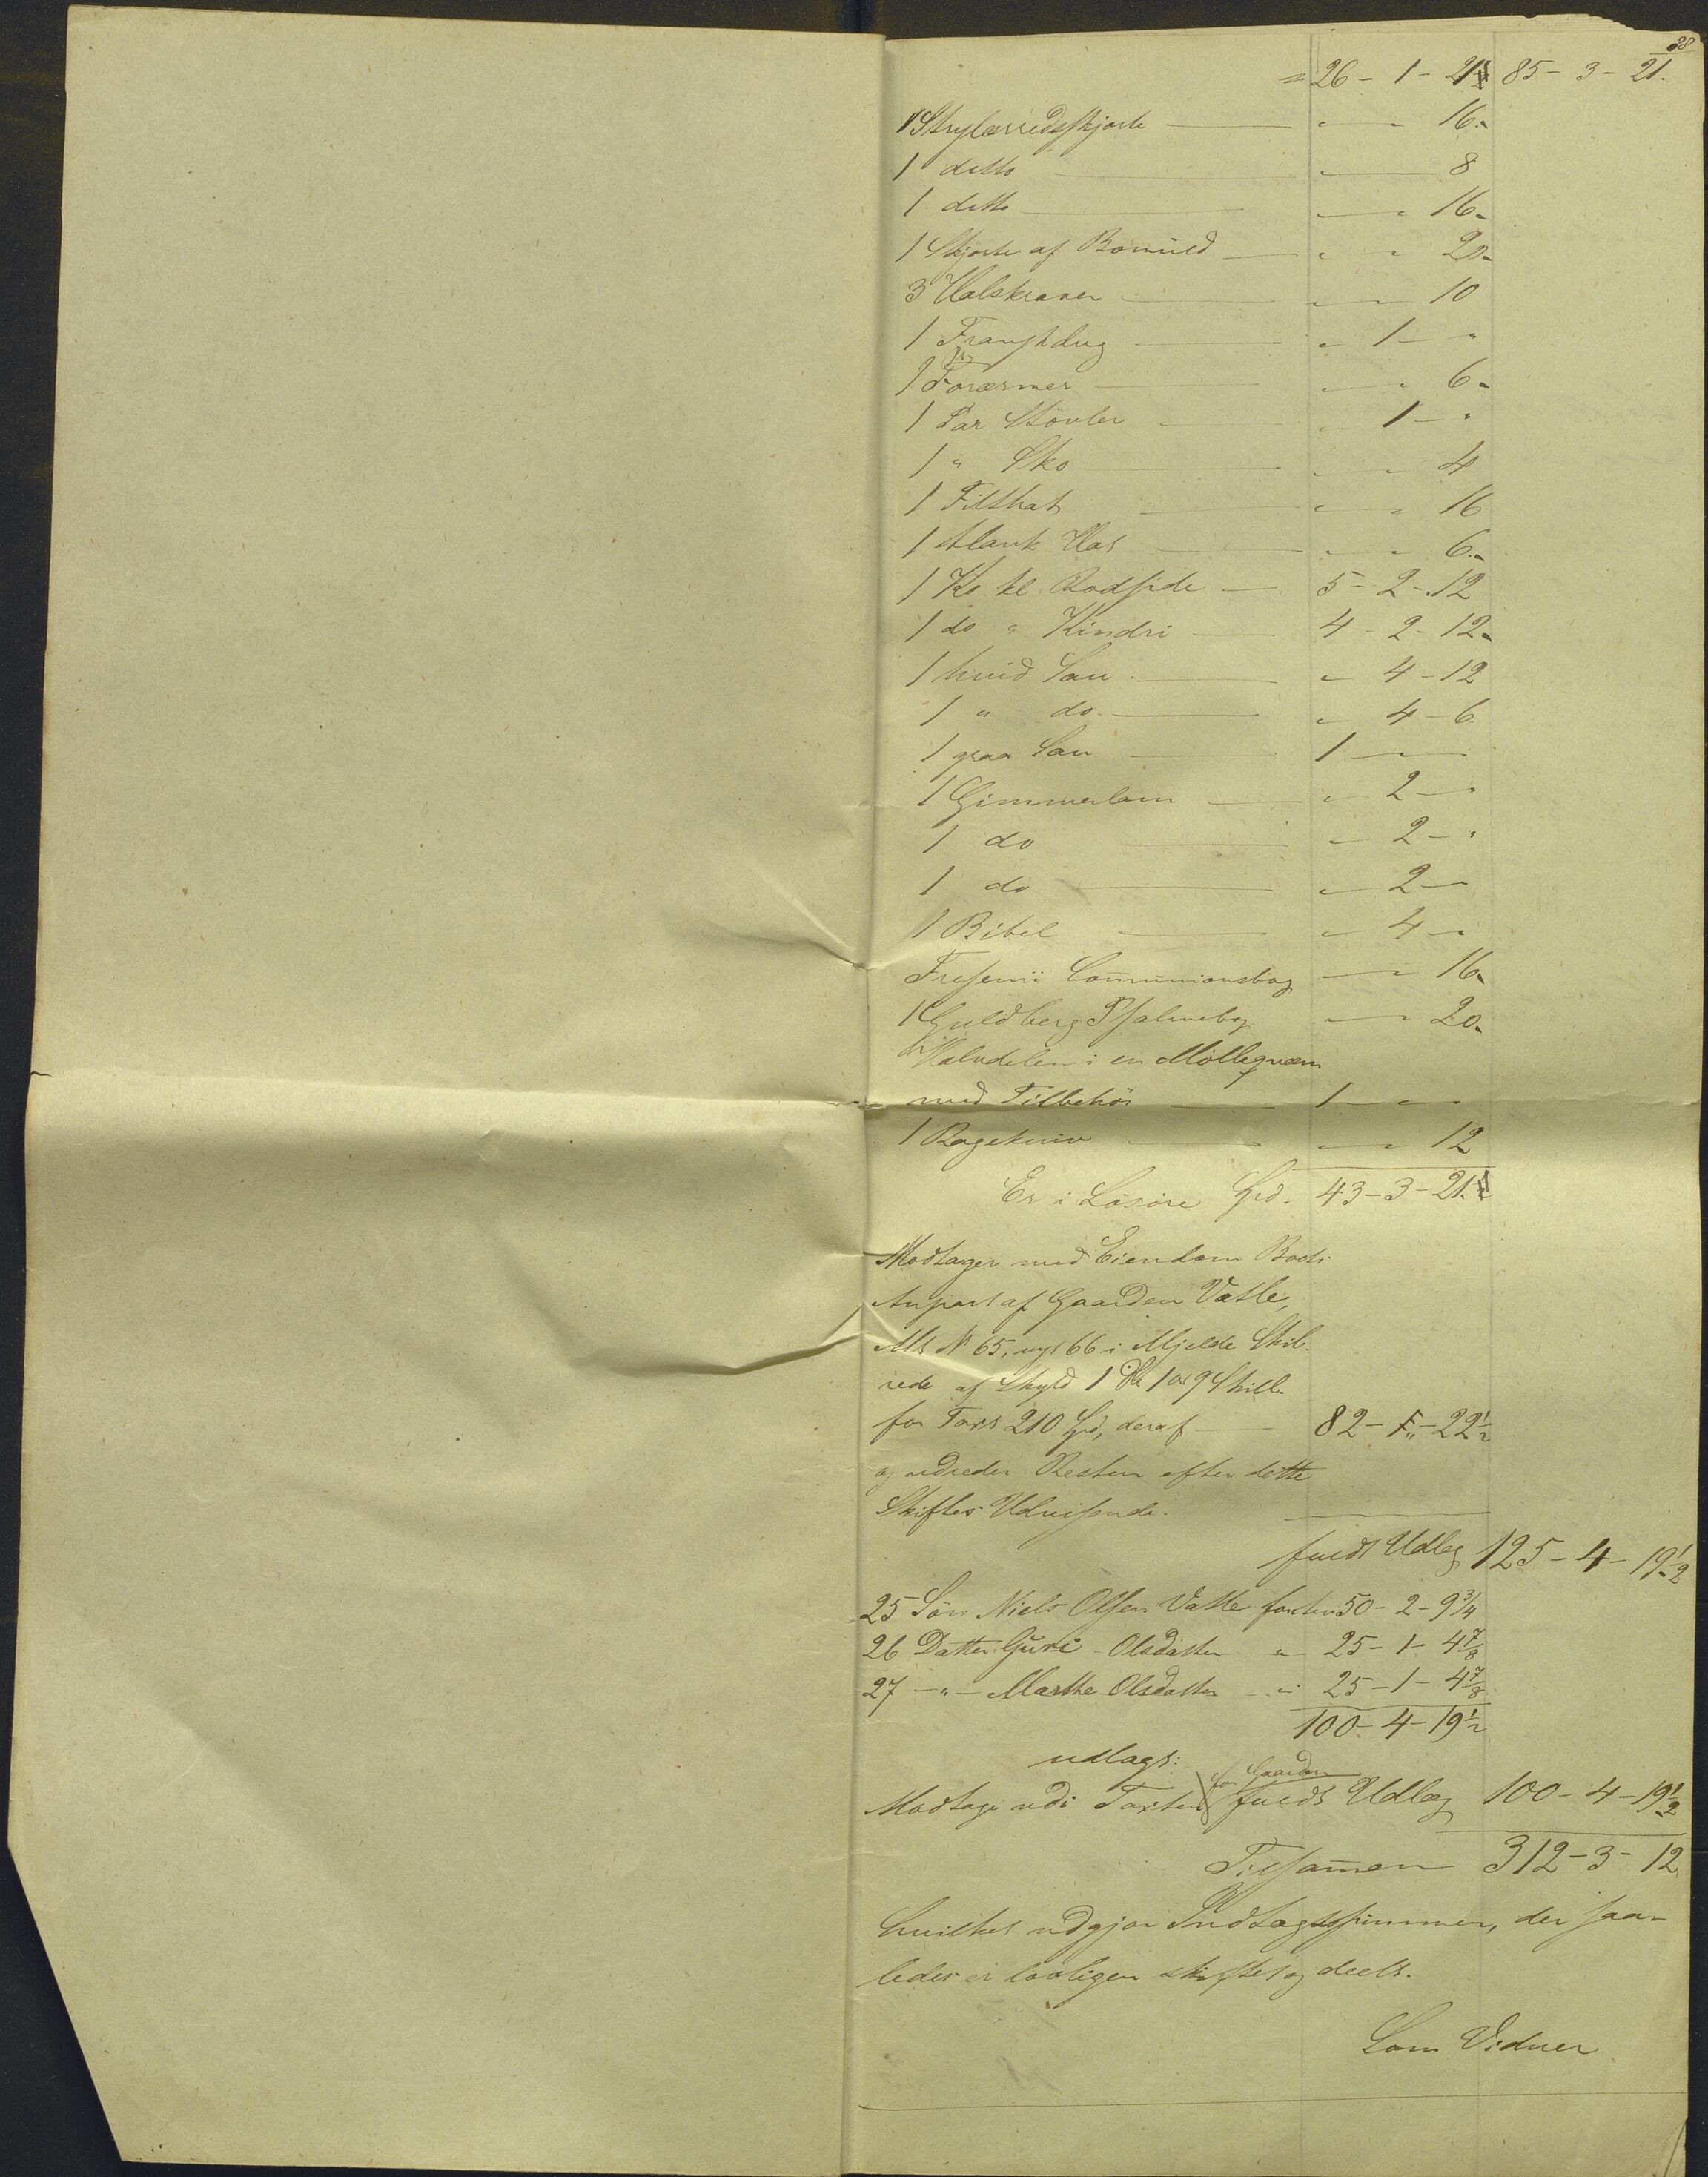 38
= 26 - 1 - 21½ 85 - 3 - 21.
1 Strylærredsskjorte — " - " 16.
1 ditto — " — 8
1 ditto — " - " 16.
1 Skjorte af Bomuld — " - " 20.
3 Halskraver — " - " 10
1 Franskdug — " 1 - "
1 Pr. Forærmer — " - " 6.
1 Par Støvler — " 1 - "
1 " Sko — " - " 4
1 Filthat — " - " 16
1 blank Hat — " - " 6.
1 Ko kl. Rodside — 5 - 2 - 12
1 do " Kindri — 4 - 2 - 12.
1 hvid Sau — " 4 - 12
1 " do. — " 4 - 6
1 graa Sau — 1 - " - "
1 Gimmerlam — " 2 - "
1 do — " 2 - "
1 do — " 2 - "
1 Bibel — " 4 - "
Fresenii Communionsbog — " 16.
1 Guldberg Psalmebog — " 20.
Halvdelen i en Mølleqværn
med Tilbehør — 1 - " - "
1 Ragekniv — " - " 12
Er i Løsøre Spd. 43 - 3 - 21.
Modtager med Eiendom Bods
Anpart af Gaarden Vatle,
M. N 65, nyt 66 i Mjelde Skib-
rede af Skyld 1 Dlr 1 ort 9 Skill.
for Taxt 210 Spd, deraf — 82 - " - 22½
og udreder Resten efter dette
Skiftes Udvisende.
fuldt Udlæg 125 - 4 - 19½
25 Søn Niels Olsen Vatle for Arv 50 - 2 - 9¾
26 Datter Guri Olsdatter " 25 - 1 - 4⅞
27 - " - Marthe Olsdatter - " 25 - 1 - 4⅞
100 - 4 - 19½
udlagt:
Modtage udi Taxten for Gaarden fuldt Udlæg 100 - 4 - 19½
Tilsammen 312 - 3 - 12
hvilket udgjør Indtagtssummen, der saa-
ledes er lovligen skiftet og deelt.
Som Vidner